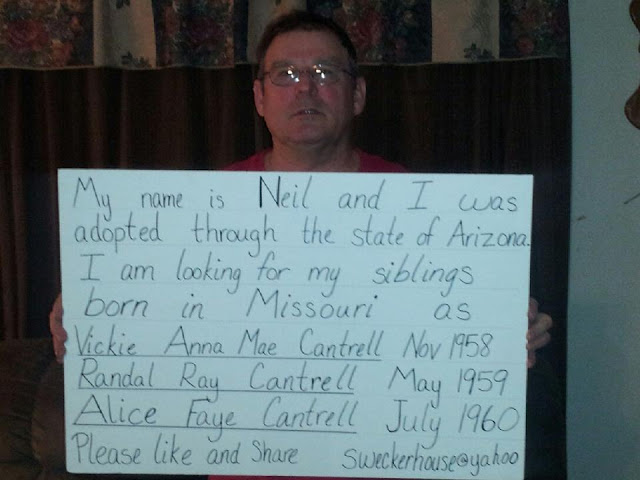 My name is Neil and I was
adopted through the state of Arizona.
I am looking for my siblings
born in Missouri as
Vickie Anna Mae Cantrell Nov 1958
Randal Ray Cantrell May 1959
Alice Faye Cantrell July 1960
Please like and Share sweckerhouse@yahoo